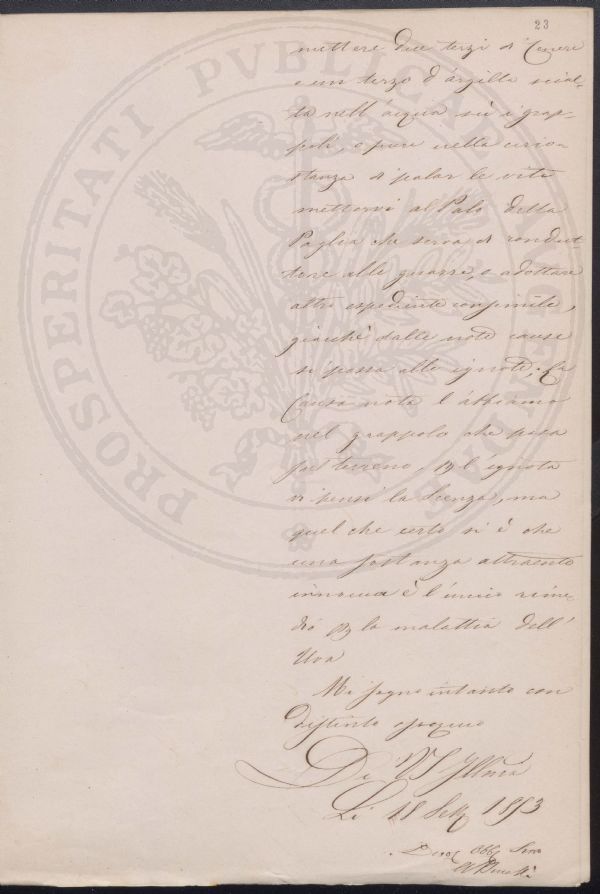 23
mettere due terzi di Cenere
e un terzo d'argilla sciol-
ta nell'acqua sù i grap-
poli, o pure nella circo-
stanza di palar le viti
mettervi al Palo della
Paglia che serva di condut-
tore alle guazze, o adottare
altro espediente consimile,
giacchè dalle note cause
si passa alle ignote. La
Causa nota l'abbiamo
nel grappolo che posa
sul terreno. Per l'ignota
vi pensi la Scienza, ma
quel che certo si è che
una sostanza attraente
innocua è l'unico rime-
dio per la malattia dell'
Uva
Mi segno intanto con
distinto ossequio
Di VS Illma
Li 18 Sett 1853
Devo Obbo Servo
PROSPERITATI PVBLICAE AVGENDAE